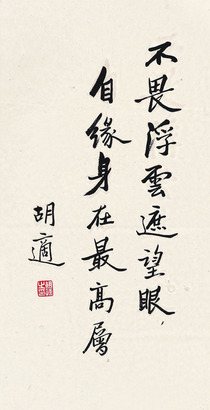 不畏浮雲遮望眼，
自緣身在最高層
胡適